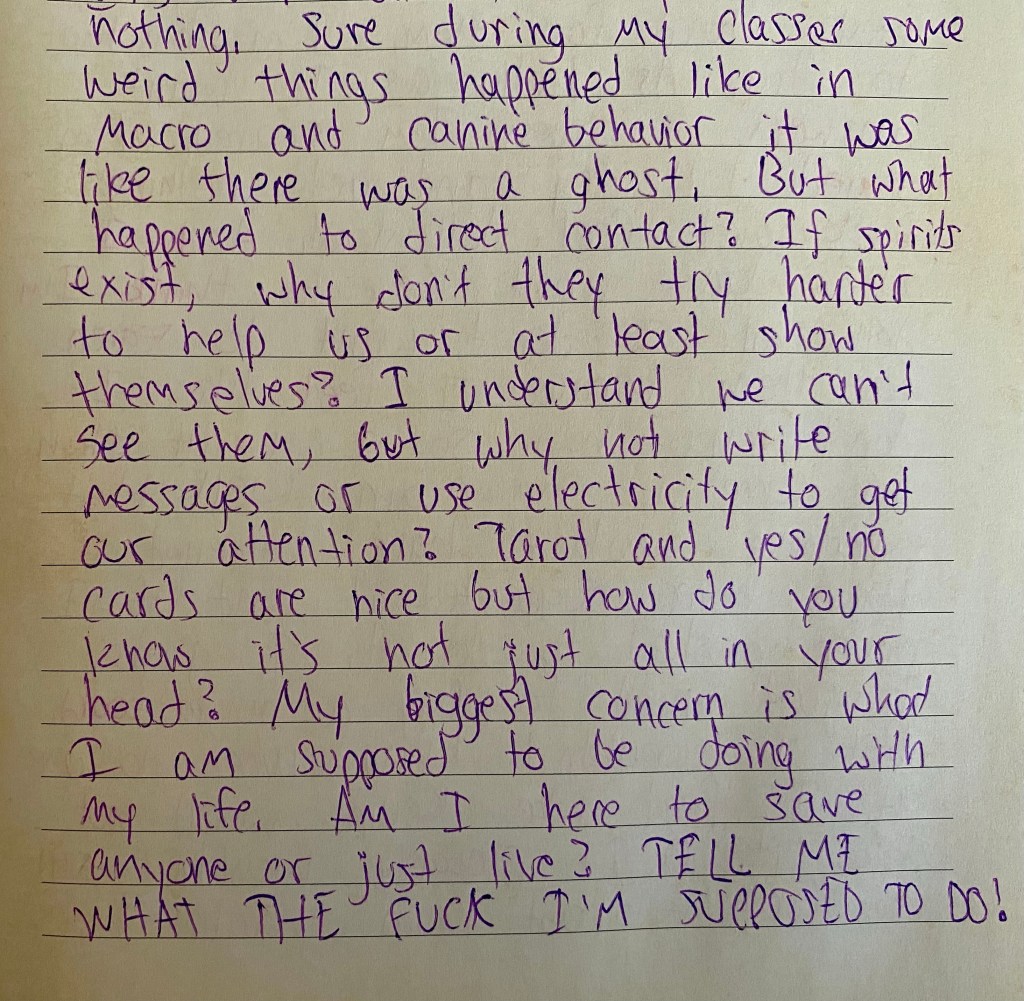 nothing. Sure during my classes some
weird things happened like in
Macro and canine behavior it was
like there was a ghost. But what
happened to direct contact? If spirits
exist, why don't they try harder
to help us or at least show
themselves? I understand we can't
see them, but why not write
messages or use electricity to get
our attention? Tarot and yes/no
cards are nice but how do you
know it's not just all in your
head? My biggest concern is what
I am supposed to be doing with
my life. Am I here to save
anyone or just live? TELL ME
WHAT THE FUCK I'M SUPPOSED TO DO!